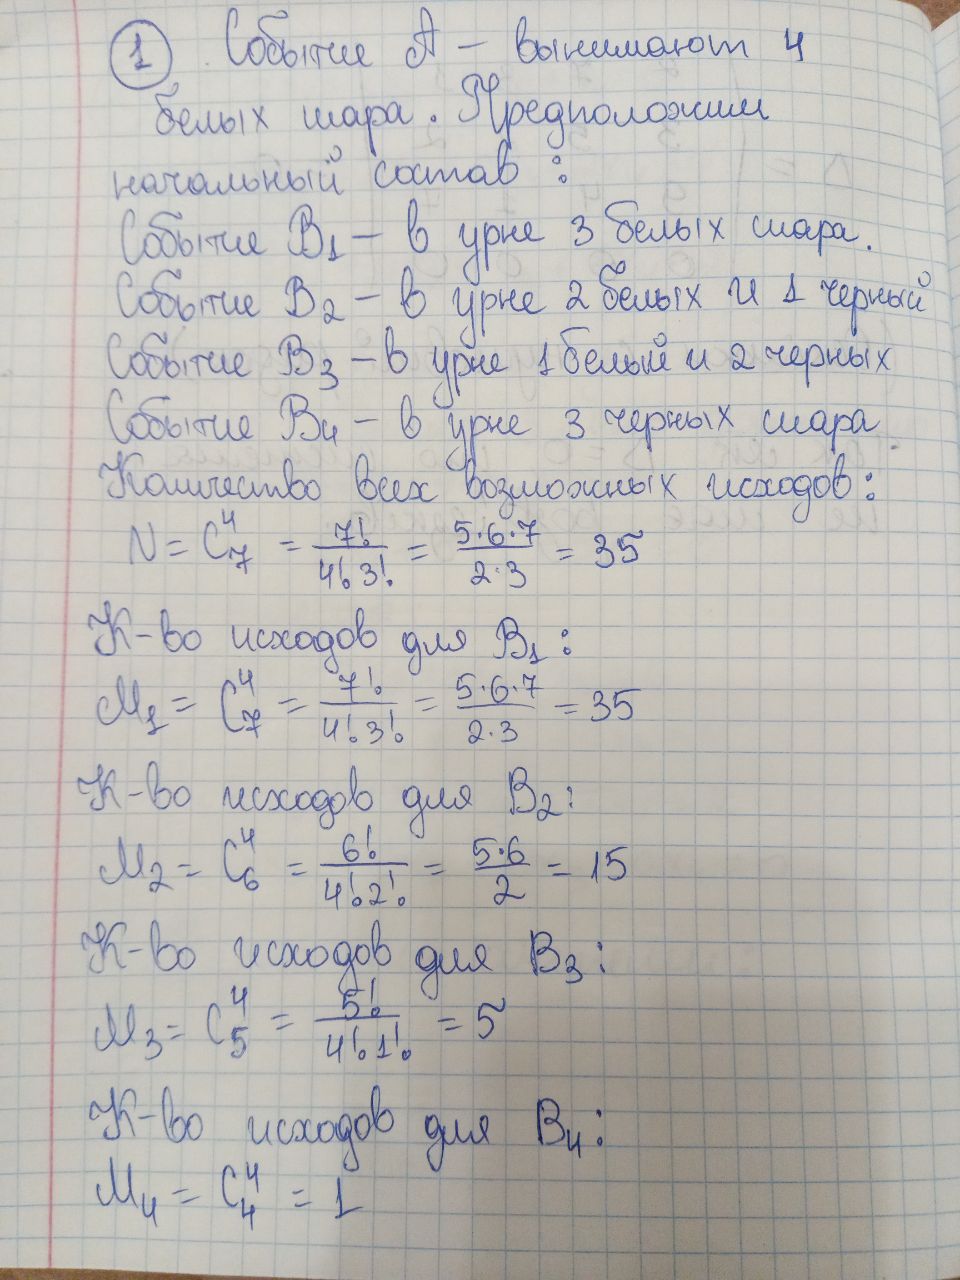 1 Событие A – вынимают 4
белых шара. Предположим
начальный состав:
Событие B₁ – в урне 3 белых шара.
Событие B₂ – в урне 2 белых и 1 черный
Событие B₃ – в урне 1 белый и 2 черных
Событие B₄ – в урне 3 черных шара
Количество всех возможных исходов:
N = C₇⁴ = 7!/4!3! = 5·6·7/2·3 = 35
К-во исходов для B₁:
M₁ = C₇⁴ = 7!/4!3! = 5·6·7/2·3 = 35
К-во исходов для B₂:
M₂ = C₆⁴ = 6!/4!2! = 5·6/2 = 15
К-во исходов для B₃:
M₃ = C₅⁴ = 5!/4!1! = 5
К-во исходов для B₄:
M₄ = C₄⁴ = 1